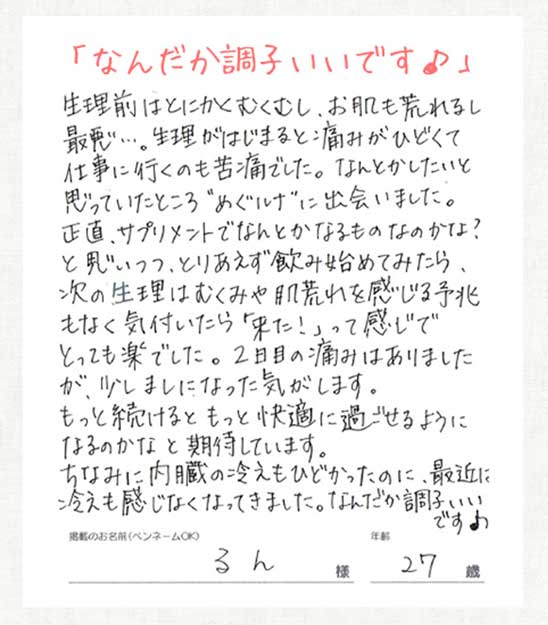 「なんだか調子いいです♪」
生理前はとにかくむくむし、お肌も荒れるし
最悪…。生理がはじまると痛みがひどくて
仕事に行くのも苦痛でした。なんとかしたいと
思っていたところ"めぐルナ"に出会いました。
正直、サプリメントでなんとかなるものなのかな?
と思いつつ、とりあえず飲み始めてみたら、
次の生理はむくみや肌荒れを感じる予兆
もなく気付いたら「来た!」って感じで
とっても楽でした。2日目の痛みはありました
が、少しましになった気がします。
もっと続けるともっと快適に過ごせるように
なるのかなと期待しています。
ちなみに内臓の冷えもひどかったのに、最近は
冷えも感じなくなってきました。なんだか調子いい
です♪
掲載のお名前(ペンネームOK) 年齢
るん 様 27 歳